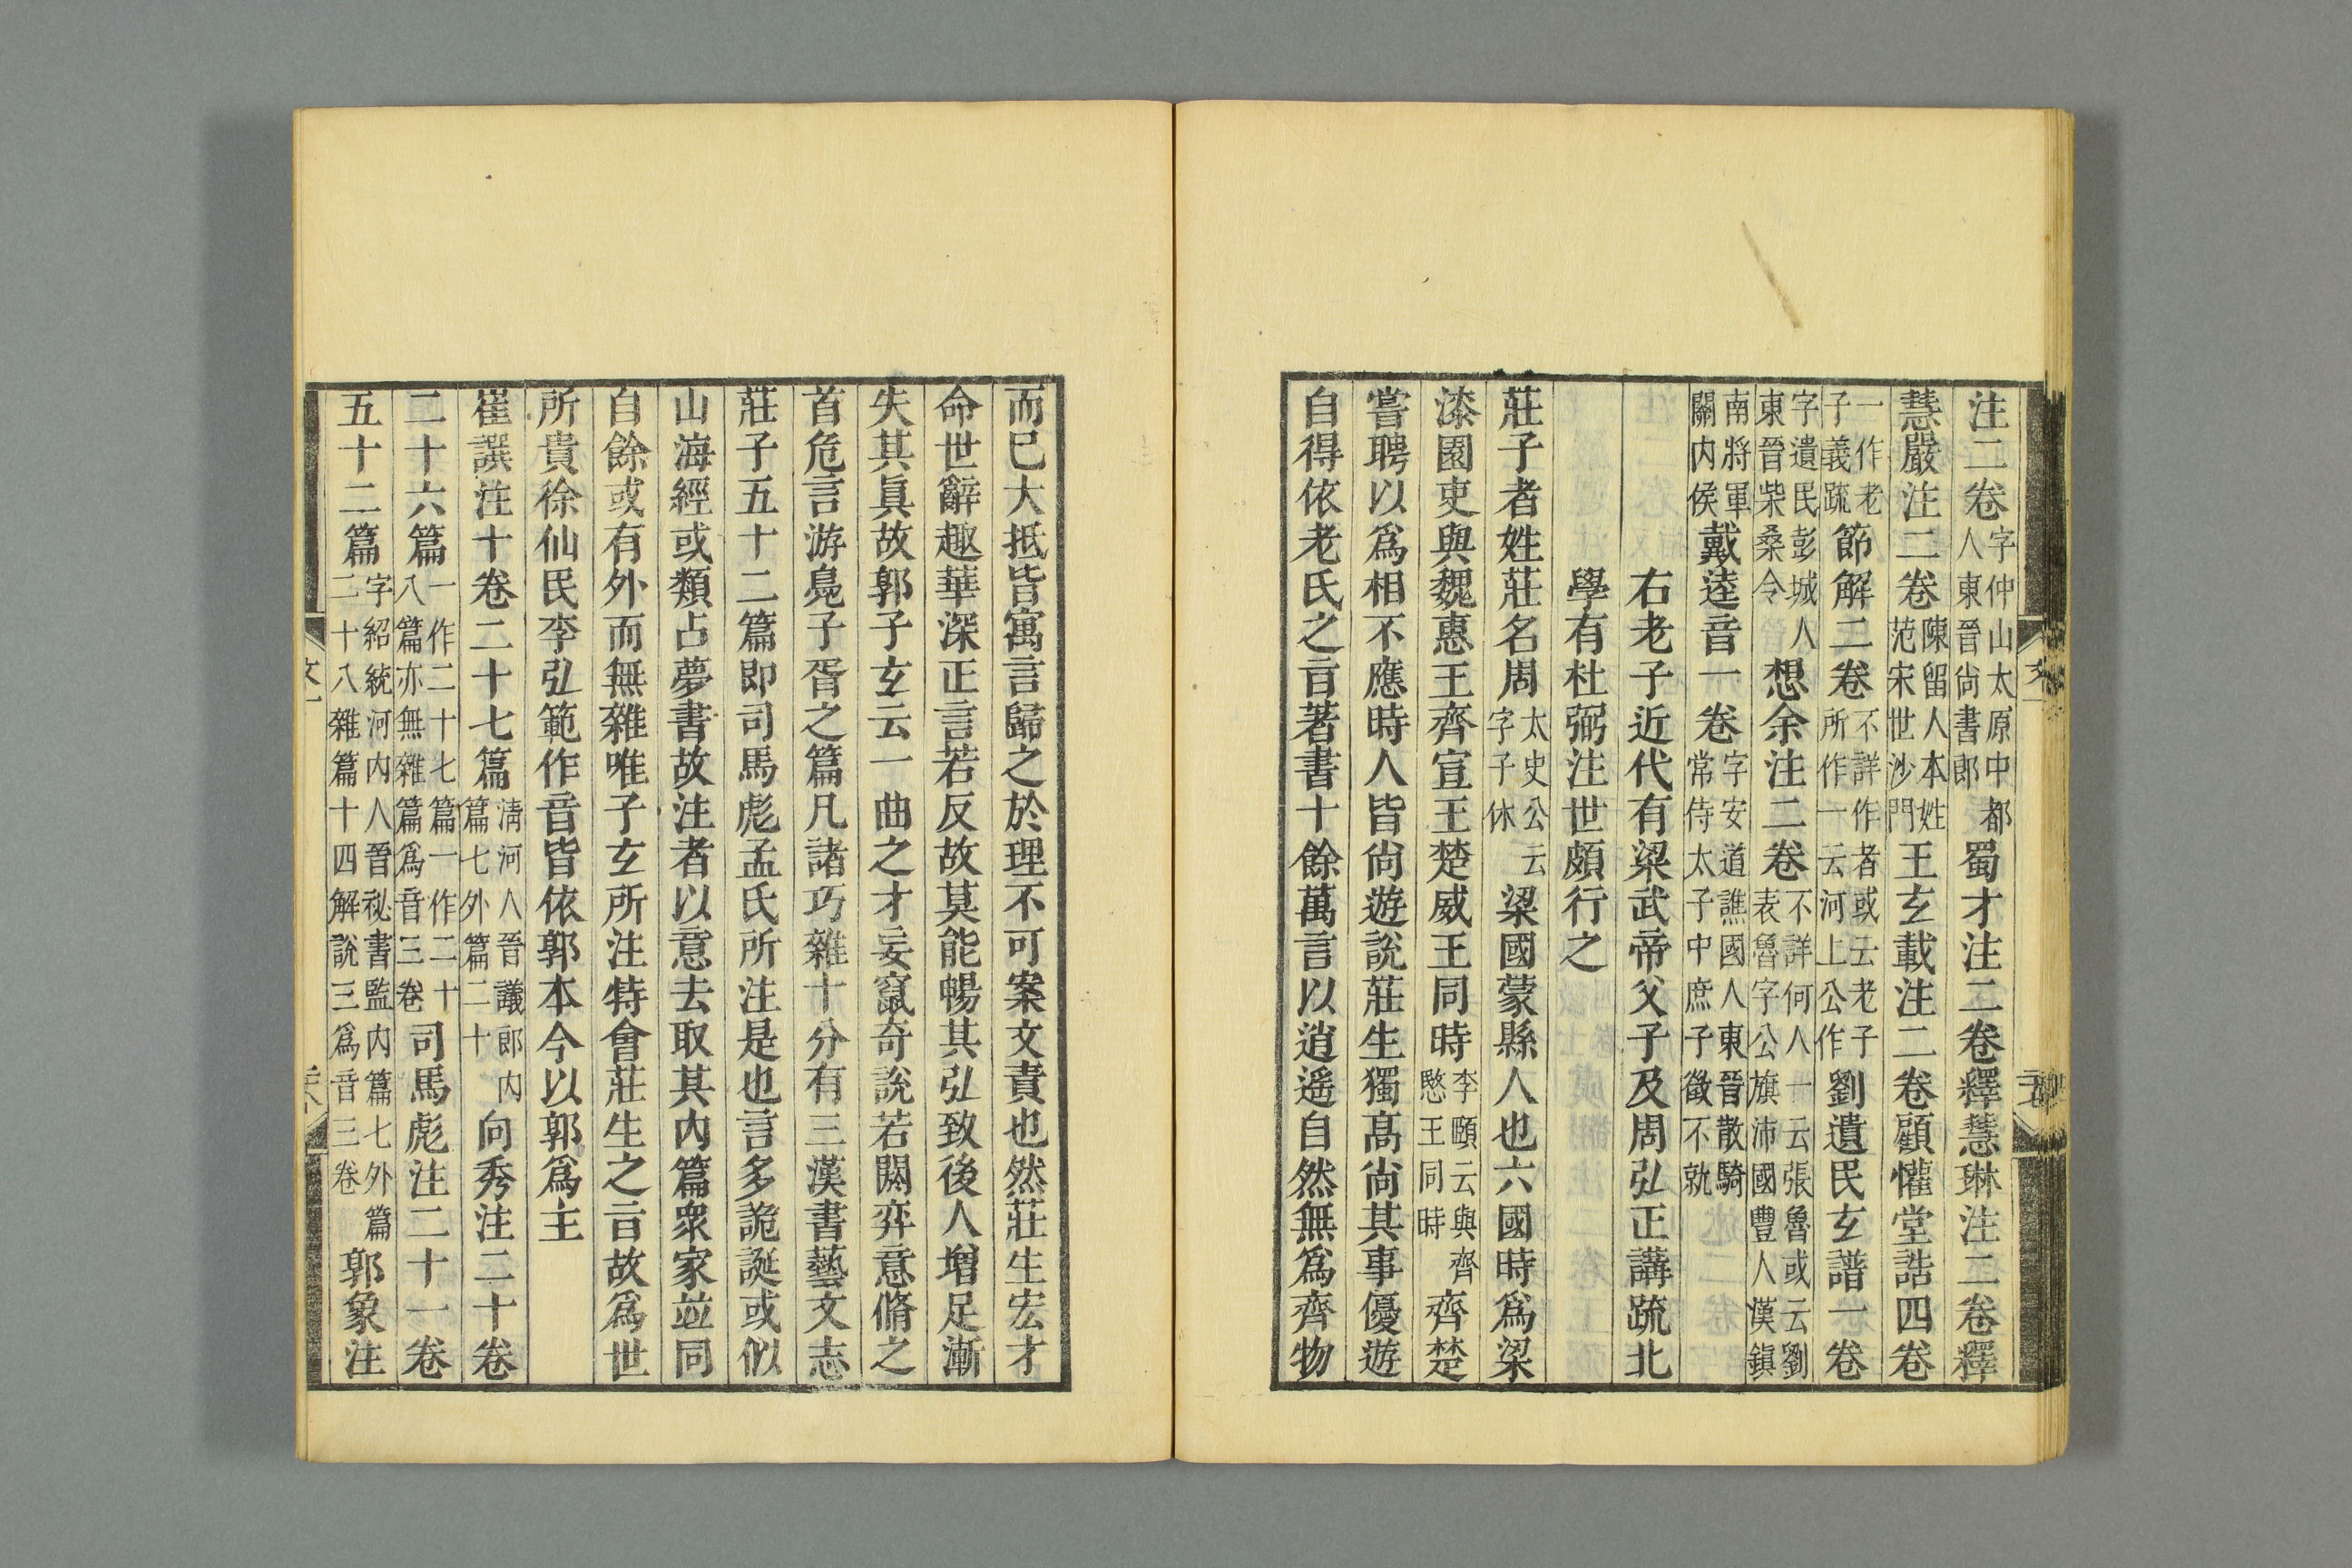 注二卷字仲山太原中都人東晉尙書郎蜀才注二卷釋慧琳注二卷釋
慧嚴注二卷陳留人本姓范宋世沙門王玄載注二卷顧懽堂誥四卷
一作老子義䟽節解二卷不詳作者或云老子所作一云河上公作劉遺民玄譜一卷
字遺民彭城人東晉柴桑令想余注二卷不詳何人一云張魯或云劉表魯字公旗沛國豐人漢鎭
南將軍關内侯戴逵音一卷字安道譙國人東晉散騎常侍太子中庶子徵不就
右老子近代有梁武帝父子及周弘正講䟽北
學有杜弼注世頗行之
莊子者姓莊名周太史公云字子休梁國蒙縣人也六國時爲梁
漆園吏與魏惠王齊宣王楚威王同時李頤云與齊愍王同時齊楚
嘗聘以爲相不應時人皆尙遊說莊生獨高尙其事優遊
自得依老氏之言著書十餘萬言以逍遙自然無爲齊物
而已大抵皆寓言歸之於理不可案文責也然莊生宏才
命世辭趣華深正言若反故莫能暢其弘致後人增足漸
失其眞故郭子玄云一曲之才妄竄奇說若閼弈意脩之
首危言游鳧子胥之篇凡諸巧雜十分有三漢書藝文志
莊子五十二篇即司馬彪孟氏所注是也言多詭誕或似
山海經或類占夢書故注者以意去取其内篇衆家並同
自餘或有外而無雜唯子玄所注特會莊生之言故爲世
所貴徐仙民李弘範作音皆依郭本今以郭爲主
崔譔注十卷二十七篇淸河人晉議郎内篇七外篇二十向秀注二十卷
二十六篇一作二十七篇一作二十八篇亦無雜篇爲音三卷司馬彪注二十一卷
五十二篇字紹統河内人晉祕書監内篇七外篇二十八雜篇十四解說三爲音三卷郭象注